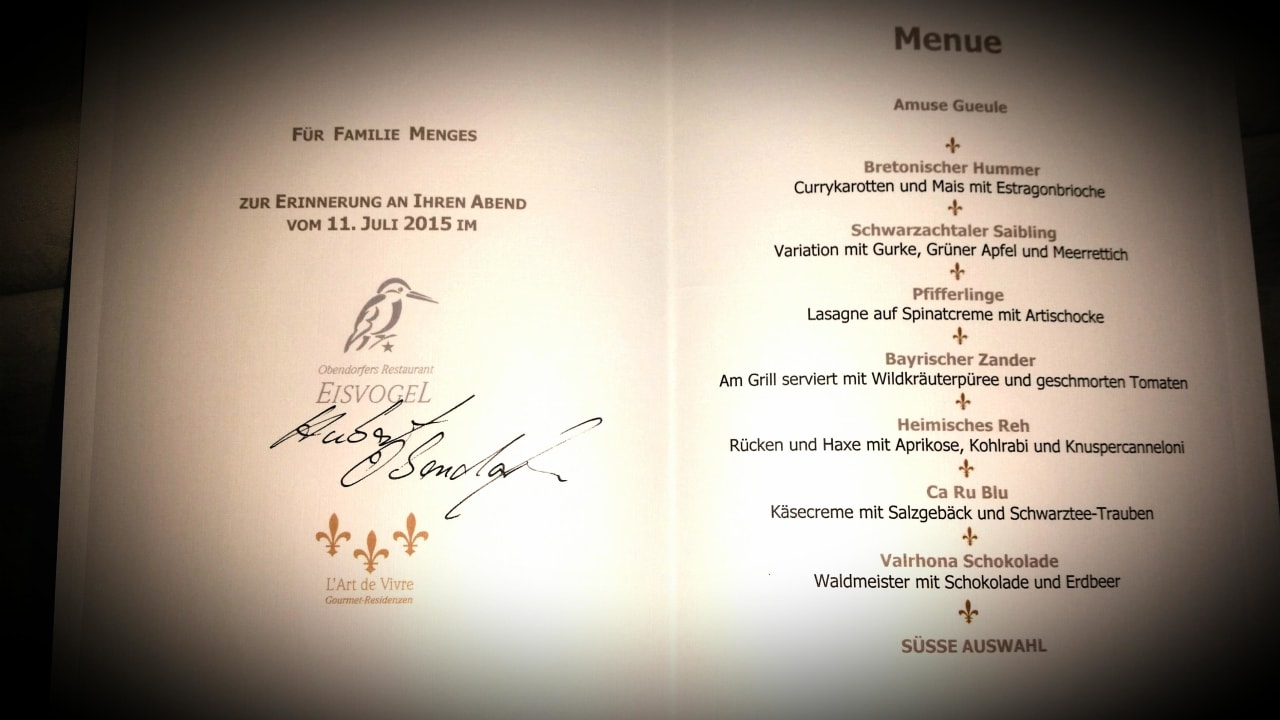 FÜR FAMILIE MENGES
ZUR ERINNERUNG AN IHREN ABEND
VOM 11. JULI 2015 IM
Obendorfers Restaurant
EISVOGEL
Hubert Obendorfer
L'Art de Vivre
Gourmet-Residenzen
Menue
Amuse Gueule
Bretonischer Hummer
Currykarotten und Mais mit Estragonbrioche
Schwarzachtaler Saibling
Variation mit Gurke, Grüner Apfel und Meerrettich
Pfifferlinge
Lasagne auf Spinatcreme mit Artischocke
Bayrischer Zander
Am Grill serviert mit Wildkräuterpüree und geschmorten Tomaten
Heimisches Reh
Rücken und Haxe mit Aprikose, Kohlrabi und Knuspercanneloni
Ca Ru Blu
Käsecreme mit Salzgebäck und Schwarztee-Trauben
Valrhona Schokolade
Waldmeister mit Schokolade und Erdbeer
SÜSSE AUSWAHL